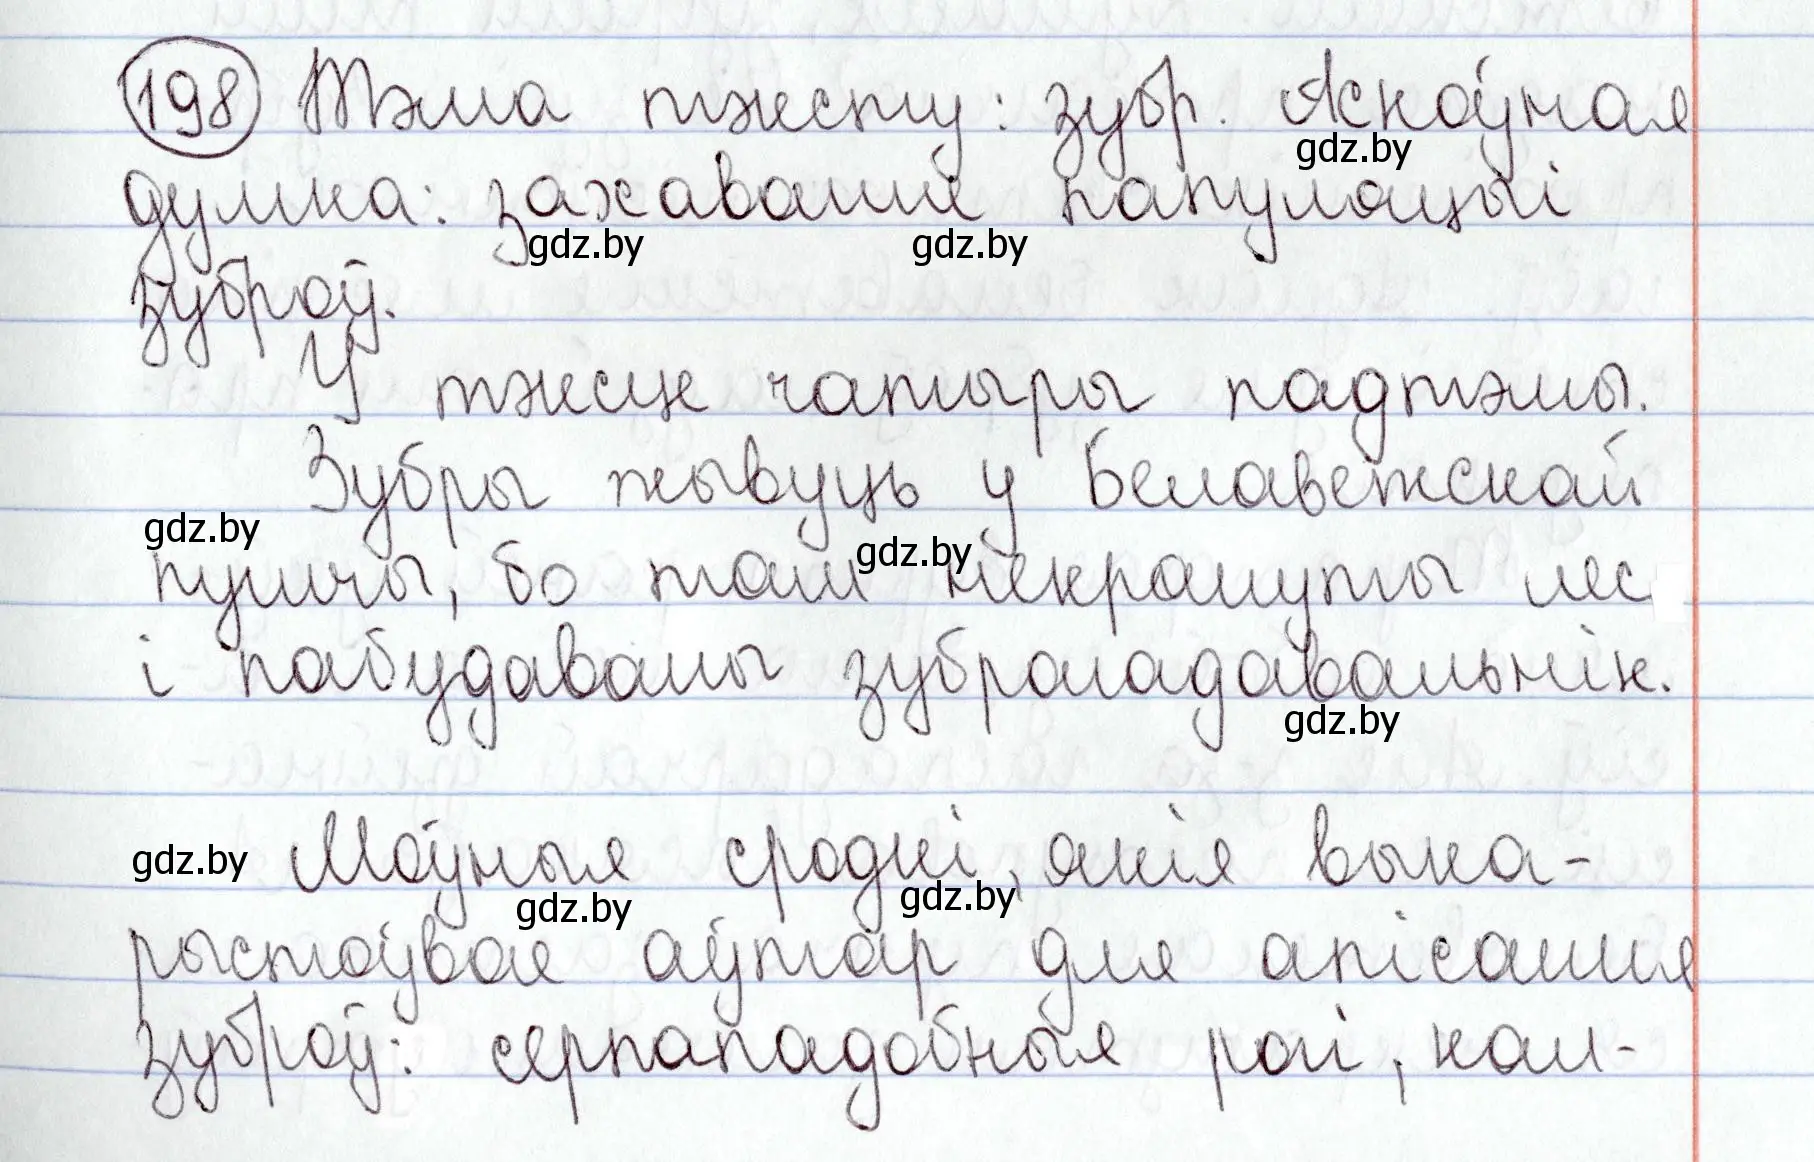 198 Тэма тэксту: зубр. Асноўная
gdz.by
думка: захаванне папуляцыі
gdz.by gdz.by
зуброў.
У тэксце чатыры падтэмы.
Зубры жывуць у Белавежскай
gdz.by
gdz.by
пушчы, бо там некрануты лес
і пабудаваны зубрагадавальнік.
gdz.by
Моўныя сродкі, якія выка-
gdz.by
gdz.by gdz.by
рыстоўвае аўтар для апісання
зуброў: серпападобныя рогі, кал-